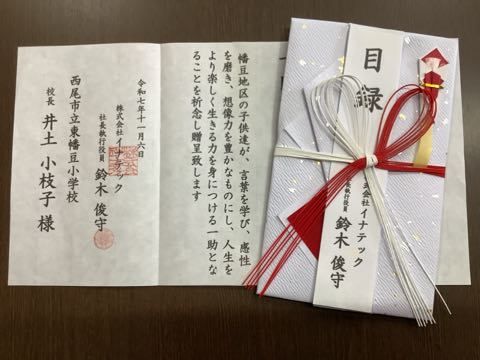 幡豆地区の子供達が、言葉を学び、感性
を磨き、想像力を豊かなものにし、人生を
より楽しく生きる力を身につける一助とな
ることを祈念し贈呈致します
令和七年十一月六日
株式会社イナテック
社長執行役員 鈴木 俊守
西尾市立東幡豆小学校
校長 井土 小枝子 様
目録
式会社イナテック
執行役員 鈴木 俊守